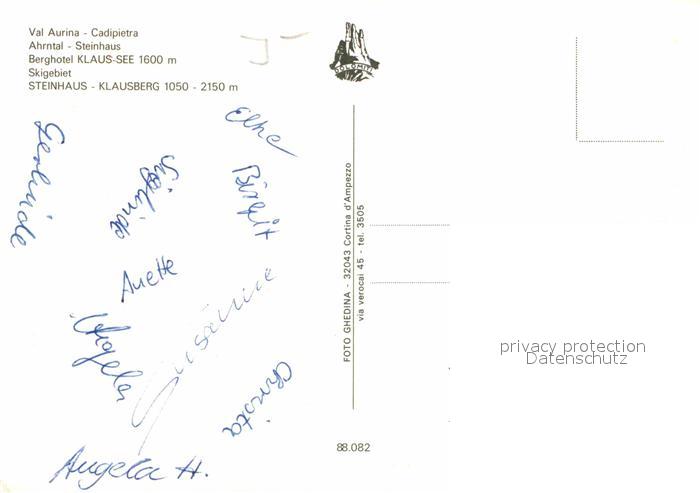 Val Aurina - Cadipietra
Ahrntal - Steinhaus
Berghotel KLAUS-SEE 1600 m
Skigebiet
STEINHAUS - KLAUSBERG 1050 - 2150 m
DOLOMITI
Elke
Gerlinde
Sieglinde
Birgit
Anette
Susanne
Angela
Christa
Angela H.
FOTO GHEDINA - 32043 Cortina d'Ampezzo
via verocai 45 - tel. 3505
privacy protection
Datenschutz
88.082